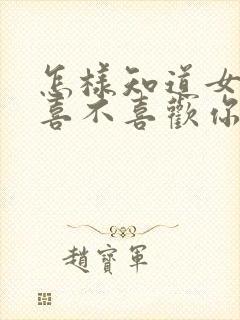 怎樣知道女
喜不喜歡你
趙寶軍